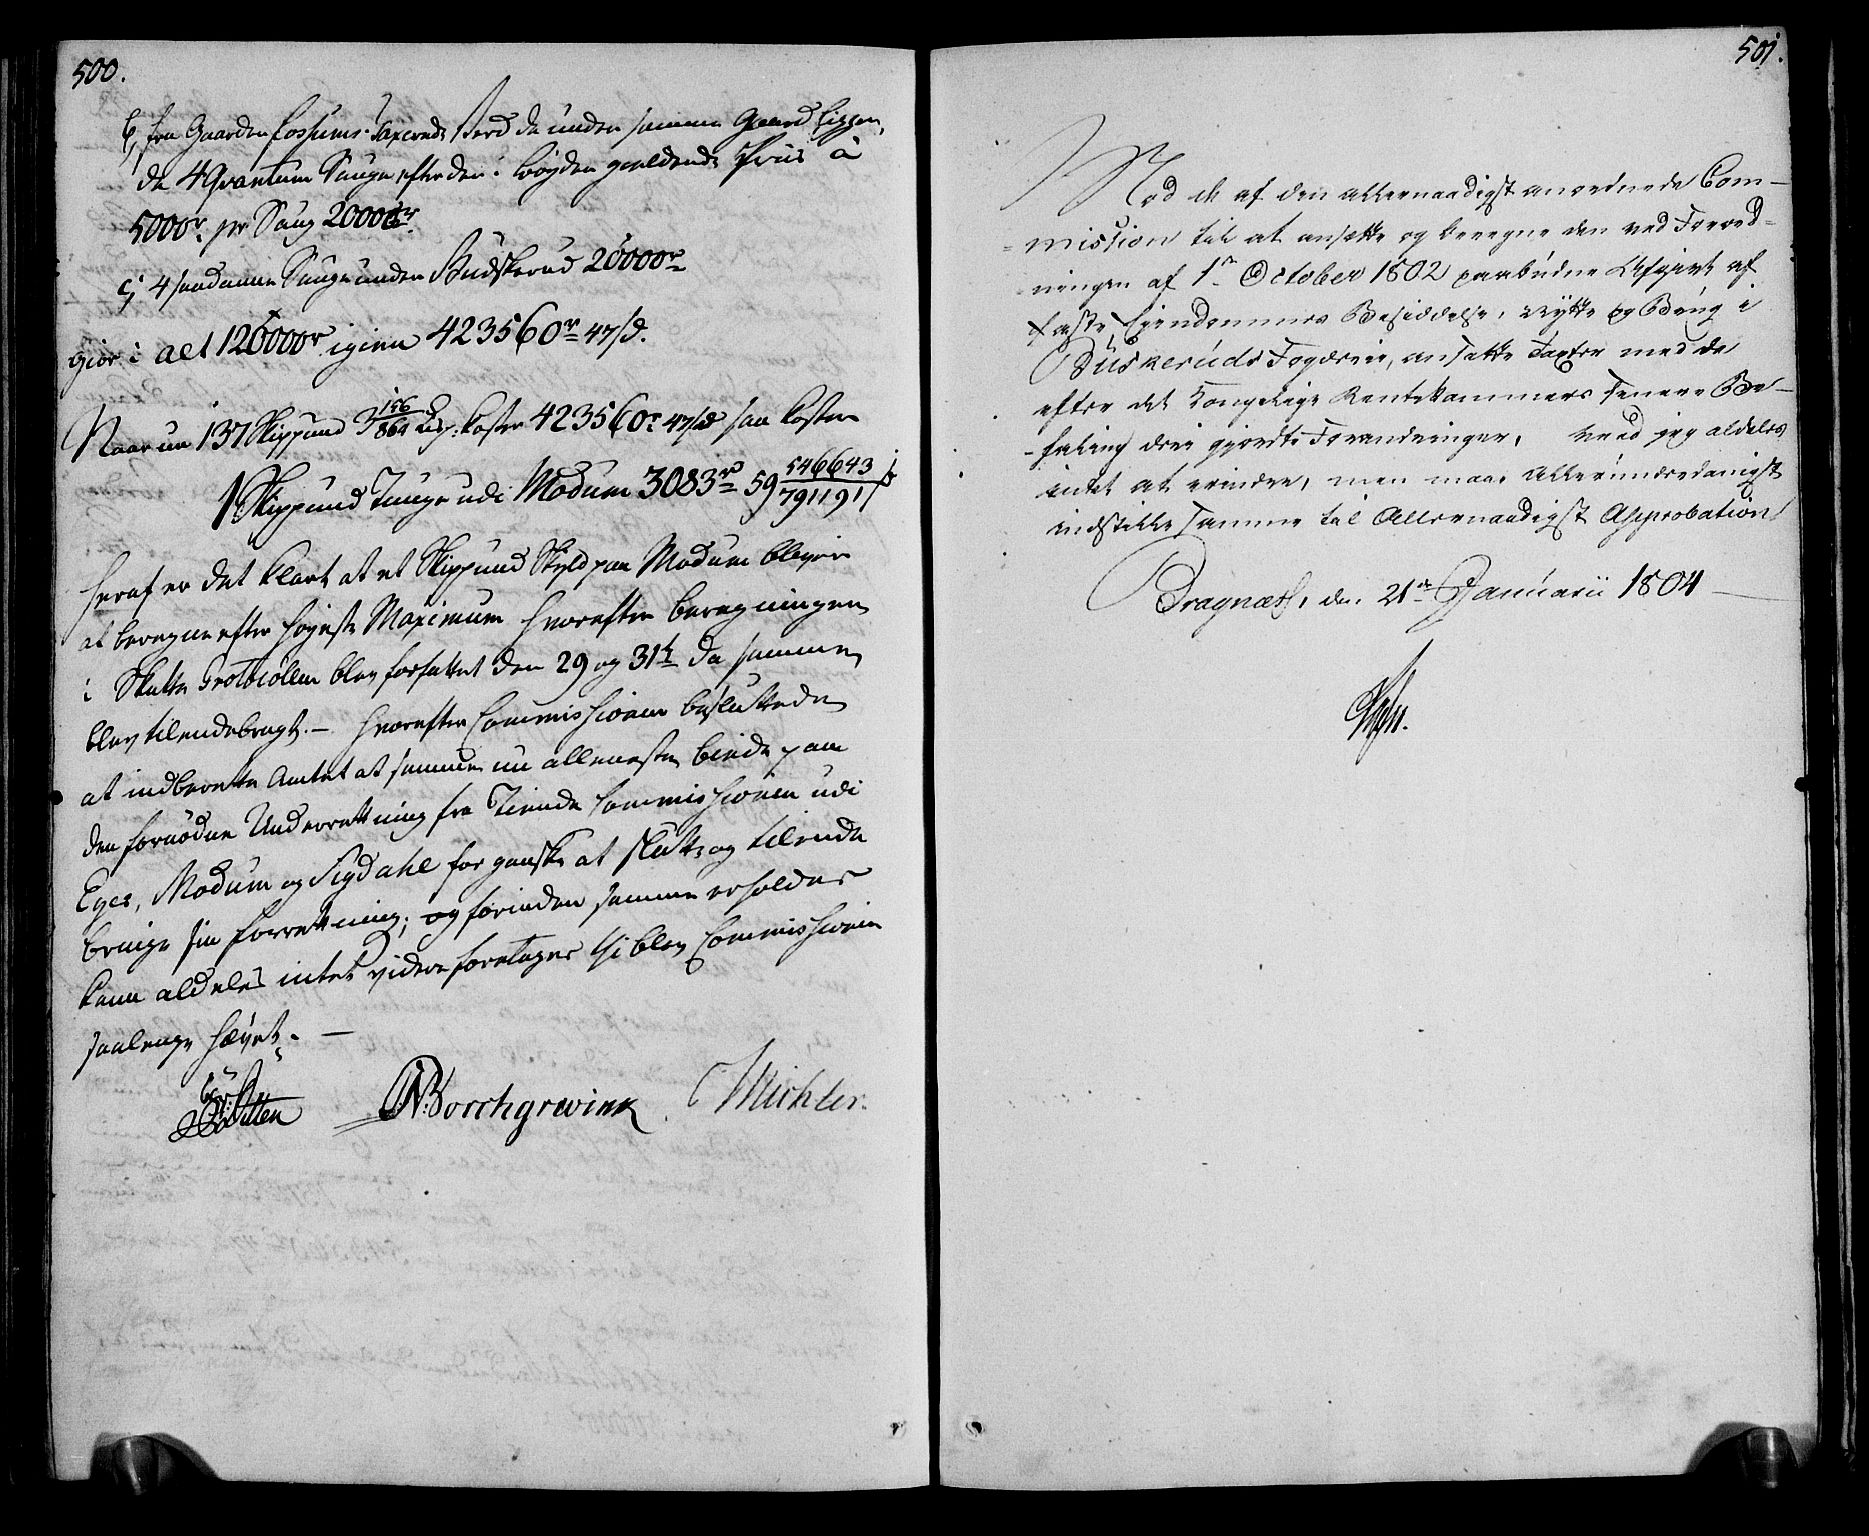 500.
b, fra Gaarden Fossums Taxerede Værd da under samme Gaard liggen
de 4 Qvantum Sauge efter den i Bøygden gieldende Priis à
5000r. pr Saug 20000r.
c, 4 saadanne Sauge under Budskerud 20000r
giør i alt 120000r igien 423560r 47 s.
Naar nu 137 Skippund 3 156/864 Lisp: koster 423560r 47 s saa koster
1 Skippund Tunge udi Modum 3083r 59 546643/791191 s
Heraf er det klart at et Skippund Skyld paa Modum bliver
at beregne efter høyeste Maximum hvorefter beregningen
i Skatte Protocollen blev forfattet den 29 og 31te da samme
blev tilendebragt. — Hvorefter Commissionen besluttede
at indberette Amtet at samme nu alleneste biede paa
den fornødne Underretning fra Tiende Commissionen udi
Eger, Modum og Sigdahl for ganske at slutte og tilende
bringe sin Forretning; og forinden samme erholdes
kan aldeles intet videre foretages thi blev Commissionen
saalenge hævet. —
Borchgrevink Michler.
501.
Ved de af den allernaadigst anordnede Com-
mission til at ansætte og beregne den ved Forord-
ningen af 1te October 1802 paabudne Afgivt af
faste Eiendommes Besiddelse, Nytte og Brug i
Buskeruds Fogderie, ansatte Taxter med de
efter det Kongelige Rentekammers senere Be-
faling deri gjordte Forandringer, veed jeg aldeles
intet at erindre, men maae allerunderdanigst
indstille samme til Allernaadigst Approbation
Bragnæs, den 21de Januarii 1804